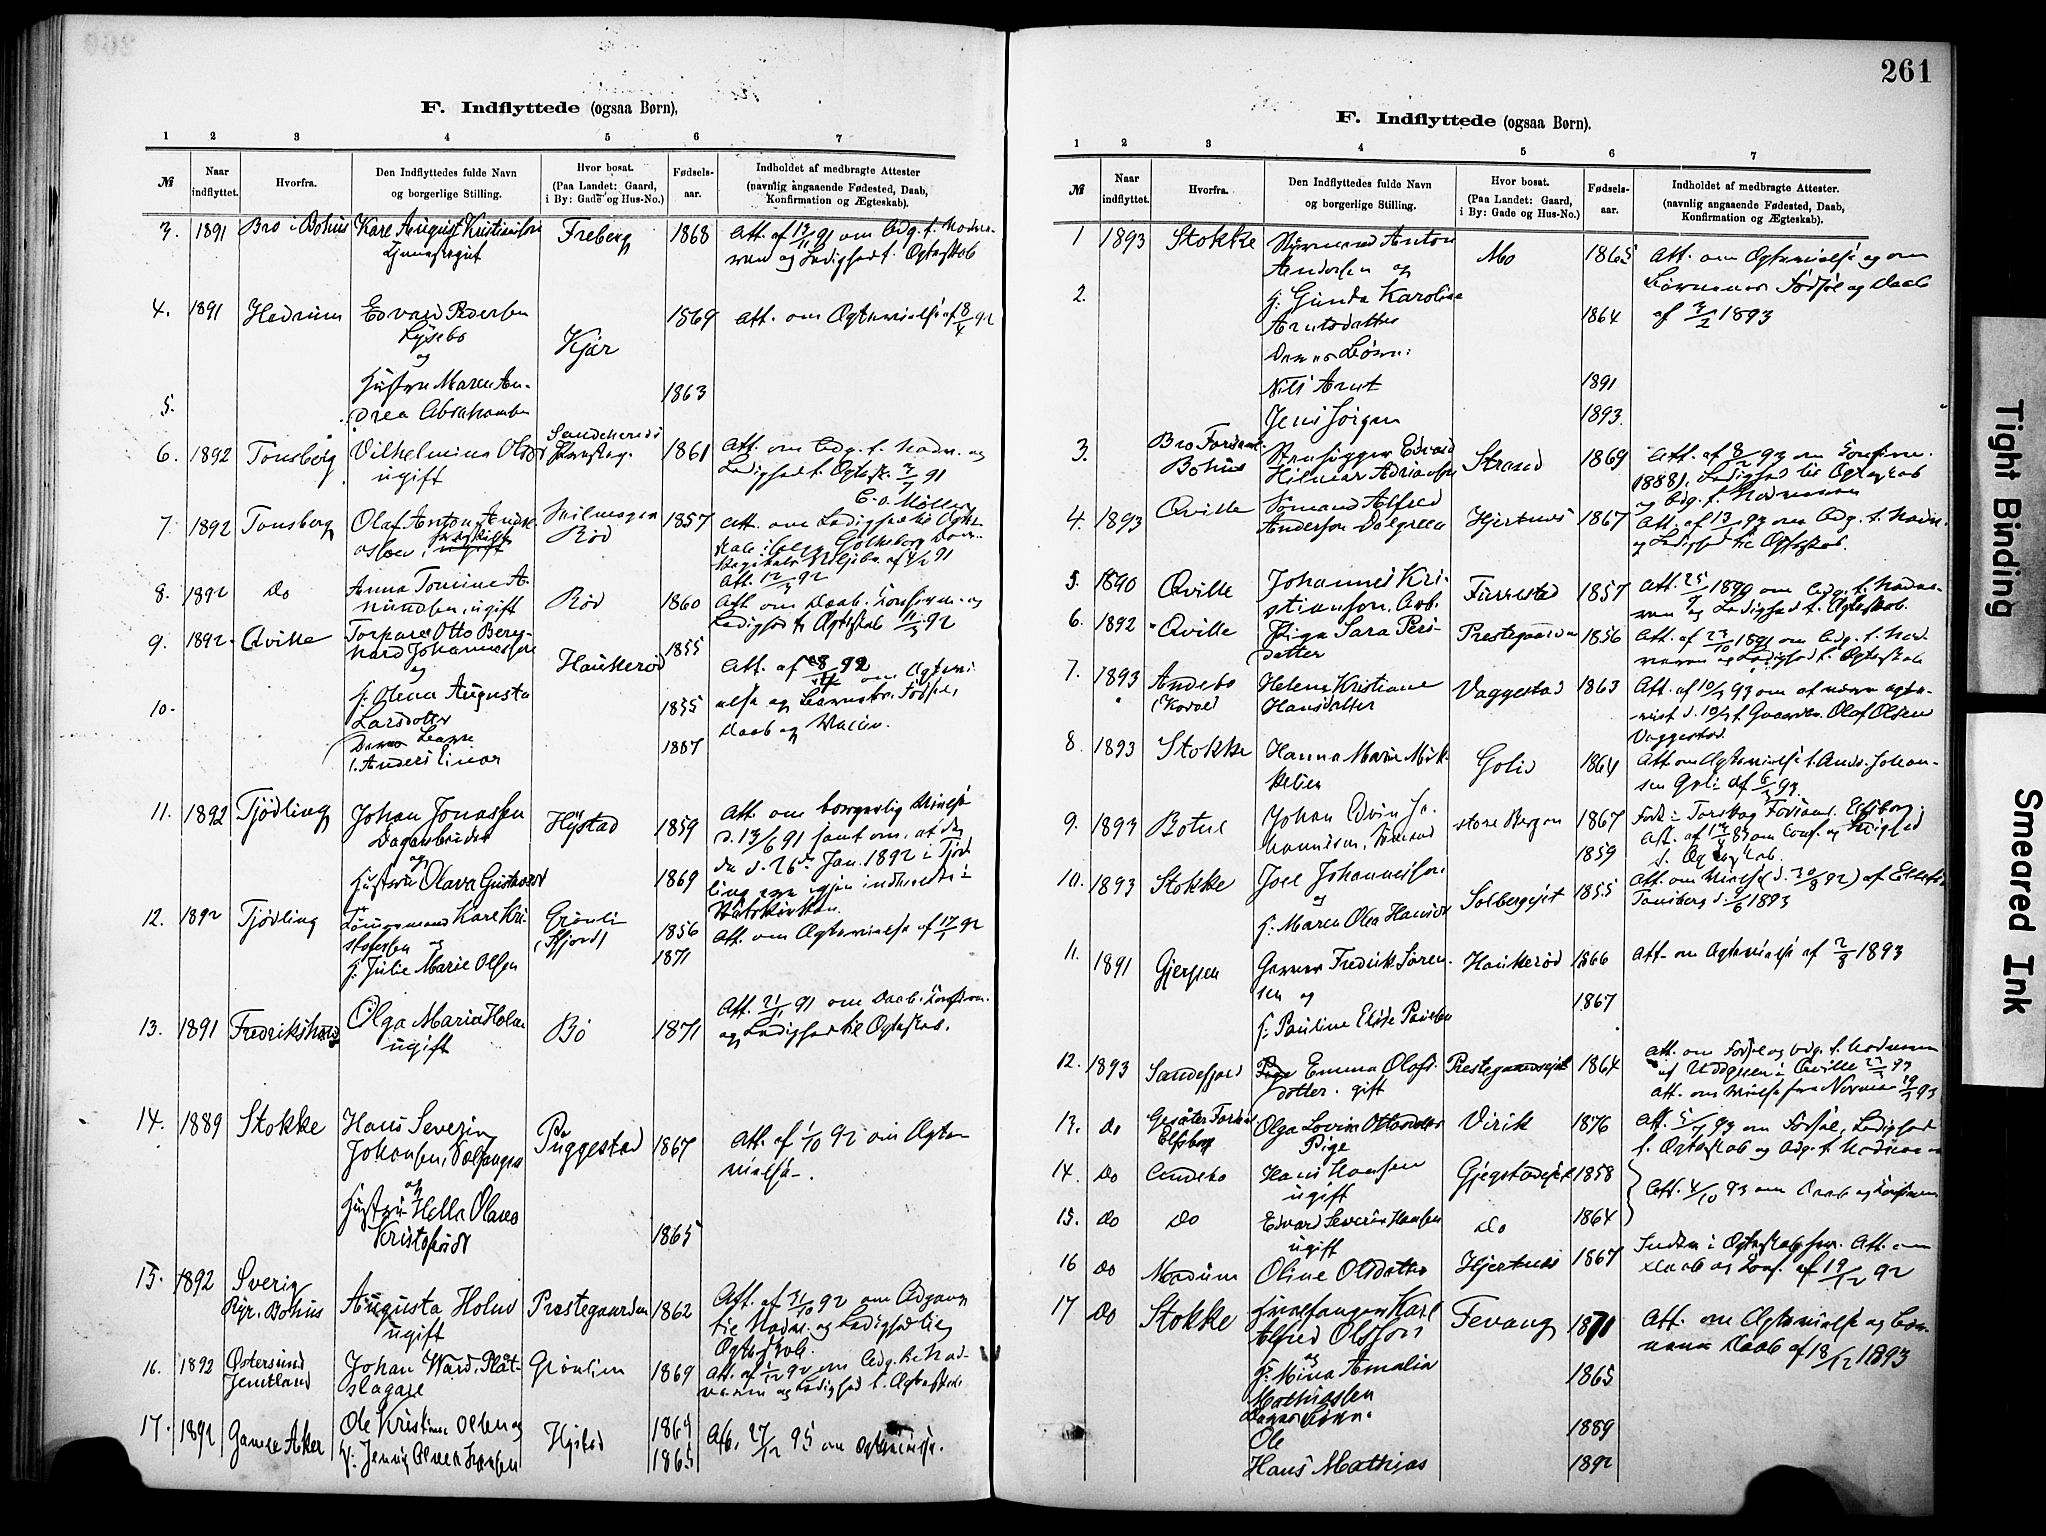 261
F. Indflyttede (ogsaa Børn).
1 2 3 4 5 6 7
№
Naar indflyttet.
Hvorfra.
Den Indflyttedes fulde Navn og borgerlige Stilling.
Hvor bosat. (Paa Landet: Gaard, i By: Gade og Hus-No.)
Fødsels-aar.
Indholdet af medbragte Attester (navnlig angaaende Fødested, Daab, Konfirmation og Ægteskab).
3. 1891 Bro i Bohus Karl August Kristiansen Freberg 1868 Att. af 13/11 91 om Adg. t. Nadve-
ren og Ledighed t. Ægteskab
4. 1891 Hedrum Edvard Pedersen 1869 Att. om Ægtevielse af 8/4 92
Lysebo
og Kjær
Hustru Maren An- 1863
5. drea Abrahamsen
6. 1892 Tønsberg Vilhelmina Olsen 1861 Att. om Adg. t. Nadv. og
ugift Ledighed t. Ægtesk. 3/7 91
7. 1892 Tønsberg Olaf Anton 1857 Att. om Ledighed til Ægte-
ugift Rød
Att. 12/3 92
8. 1892 Do Anna Tomine A- Rød 1860 Att. om Daab, Konfirm. og
mundsen, ugift Ledighed t. Ægteskab 11/3 92
9. 1892 Qville Torpare Otto Bern- 1855
hard Johannessen Haukerød Att. af
og om Ægtevi-
10. f: Olena Augusta 1855 else og Barnets Fødsel,
Larsdotter Daab og Vaccin.
Deres Barn 1887
1. Anders Einar
11. 1892 Tjødling Johan Jonassen Hystad 1859 Att. om borgerlig Vielse
Dagarbeider d. 13/6 91 samt om, at de
og d. 26de Jan. 1892 i Tjød-
Hustru Olava 1869 ling ere igjen indtraadte i
Statskirken.
12. 1892 Tjødling Karl Kri- Grønli 1856 Att. om Ægtevielse af 17/1 92
stofersen og (Fjord) 1871
f: Julie Marie Olsen
13. 1891 Fredrikshald Olga Maria Holm Bø 1871 Att. 21/11 91 om Daab, Konfirm.
ugift og Ledighed til Ægteskab.
14. 1889 Stokke Hans Severin Puggestad 1867 Att. af 1/10 92 om Ægte-
Johansen, Hvalfanger vielse.
og
Hustru Hella Olava 1865
15. 1892 Sverig Augusta Holm Prestegaarden 1862 Att. af 31/10 92 om Adgang
Bohus ugift til Nadv. og Ledighed til
Ægteskab.
16. 1892 Østersund Johan Ward. Plåt- Grønlien 1869 Att. af 1/12 92 om Adg. t. Nad-
Jemtland slagare veren og Ledighed t. Ægteskab
17. 1892 Gamle Aker Ole Kristian Olsen og Hystad 1864 Att. 27/12 95 om Ægtevielse.
f: Jenny 1865
F. Indflyttede (ogsaa Børn).
1 2 3 4 5 6 7
№
Naar indflyttet.
Hvorfra.
Den Indflyttedes fulde Navn og borgerlige Stilling.
Hvor bosat. (Paa Landet: Gaard, i By: Gade og Hus-No.)
Fødsels-aar.
Indholdet af medbragte Attester. (navnlig angaaende Fødested, Daab, Konfirmation og Ægteskab).
1 1893 Stokke Anton Mo 1865 Att. om Ægtevielse og om
Andersen og Børnenes Fødsel og Daab
2. f: Gunda Karoline 1864 af 3/2 1893
Arntsdatter
Deres Børn:
Nils Arnt 1891
Jens Jørgen 1893.
3. Bro Bohus Stenhugger Edvard Strand 1869 Att. af 8/2 93 om Konfirm.
Hilmar Adrianson (1888), Ledighed til Ægteskab
og Adg. t. Nadveren
4. 1893 Qville Sömand Alfred Hjertnes 1867 Att. af 13/2 93 om Adg. t. Nadv.
Anderson Dalgreen og Ledighed til Ægteskab.
5. 1890 Qville Johannes Kri- Furustad 1857 Att. 25/9 1890 om Adg. t. Nadve-
stianson, Arb. ren og Ledighed t. Ægteskab.
6. 1892 Qville Pige Sara Peri- Prestegaarden 1856 Att. af 23/10 1891 om Adg. t. Nad-
datter veren og Ledighed t. Ægteskab
7. 1893 Andebo Helene Kristiane Vaggestad 1863 Att. af 10/3 93 om at være ægte-
(Kodal) Hansdatter viet Olof Olsen
Vaggestad
8. 1893 Stokke Hanna Marie Mik- Golid 1864 Att. om Ægtevielse t. Ands. Johan-
kelsen sen Goli af 5/3 93.
9. 1893 Botne Johan Edvin Jo- store Bergan 1867
hannesen, Sömand 1859 t. Ægteskab.
10. 1893 Stokke Joel Johannessen Solbergeiet 1855 Att. om Vielse (d. 30/8 92)
og Tønsberg d. 9/6 1893
f: Maren Olea
11. 1891 Gjerpen Garver Fredrik Søren- Haukerød 1866 Att. om Ægtevielse af 2/8 1893
sen og 1867
f: Pauline Elise
12. 1893 Sandefjord Pige Emma Olofs- Prestegaardseiet 1864 Att. om Fødsel og Adg. t. Nadveren
dotter. gift Qville 23/3 93
Att. om Vielse
13. Do Elfsborg Olga Lovisa Virik 1876 Att. 5/7 93 om Fødsel, Ledighed
Pige t. Ægteskab og Adg. t. Nadveren
14. Do Andebo Hans Hansen Gjegstadeiet 1858
ugift Att. 4/10 93 om Daab og Konfirm
15. Do Do Edvard Severin Hansen Do 1864
ugift
16 Do Modum Oline Olsdatter Hjertnes 1867 Indtr. i Ægteskab her. Att. om
Daab og Konf. af 19/12 92
17 Do Stokke Hvalfanger Karl Fevang 1870 Att. om Ægtevielse og Bør-
Alfred Olsson nenes Daab af 18/12 1893
og
f: Mina Amalia 1865
Mathiassen
Deres Børn:
Ole 1889
Hans Mathias 1892
Tight Binding
Smeared Ink